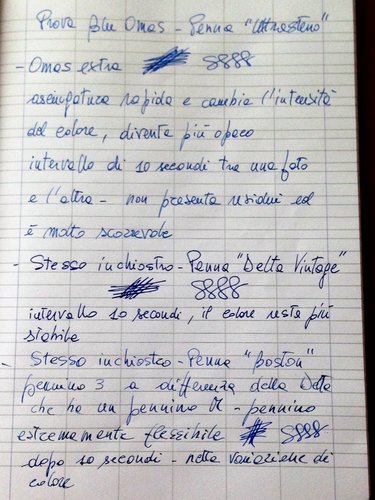 Prova blu Omas - Penna "Ultrasteno"
- Omas extra
asciugatura rapida e cambia l'intensità
del colore, diventa più opaco
intervallo di 10 secondi tra una foto
e l'altra - non presenta residui ed
è molto scorrevole
- Stesso inchiostro - Penna "Delta Vintage"
intervallo 10 secondi, il colore resta più
stabile
- Stesso inchiostro - Penna "boston"
pennino 3 a differenza della Delta
che ha un pennino M - pennino
estremamente flessibile
dopo 10 secondi - netta variazione di
colore